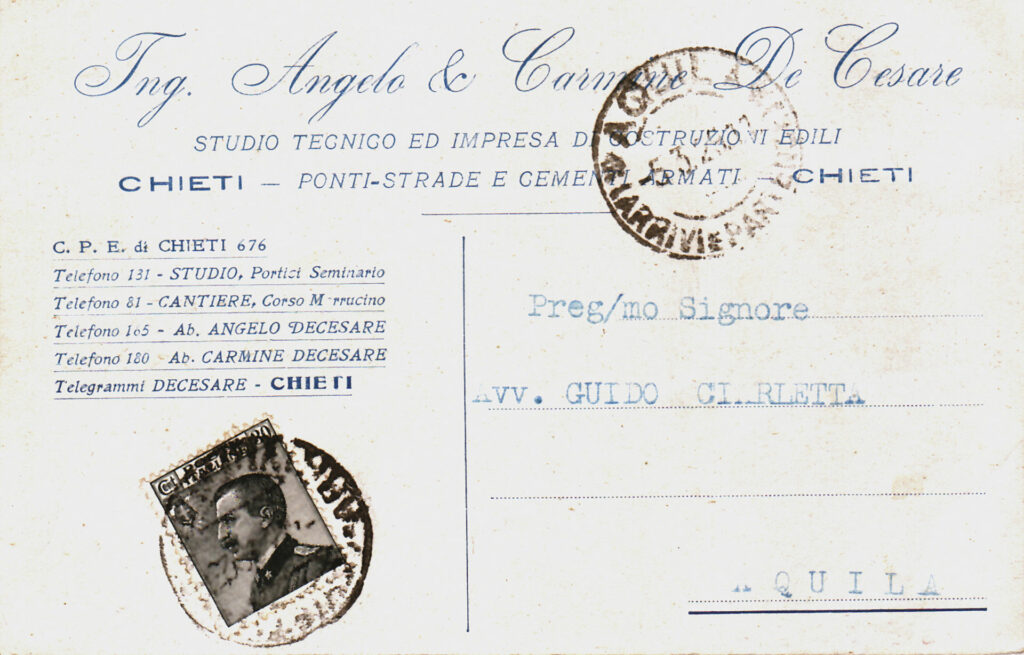 Ing. Angelo & Carmine De Cesare
STUDIO TECNICO ED IMPRESA DI COSTRUZIONI EDILI
CHIETI — PONTI-STRADE E CEMENTI ARMATI — CHIETI
AQUILA
ARRIVI E PARTENZE
C. P. E. di CHIETI 676
Telefono 131 - STUDIO, Portici Seminario
Telefono 81 - CANTIERE, Corso Marrucino
Telefono 165 - Ab. ANGELO DECESARE
Telefono 180 Ab. CARMINE DECESARE
Telegrammi DECESARE - CHIETI
Preg/mo Signore
Avv. GUIDO CIARLETTA
AQUILA